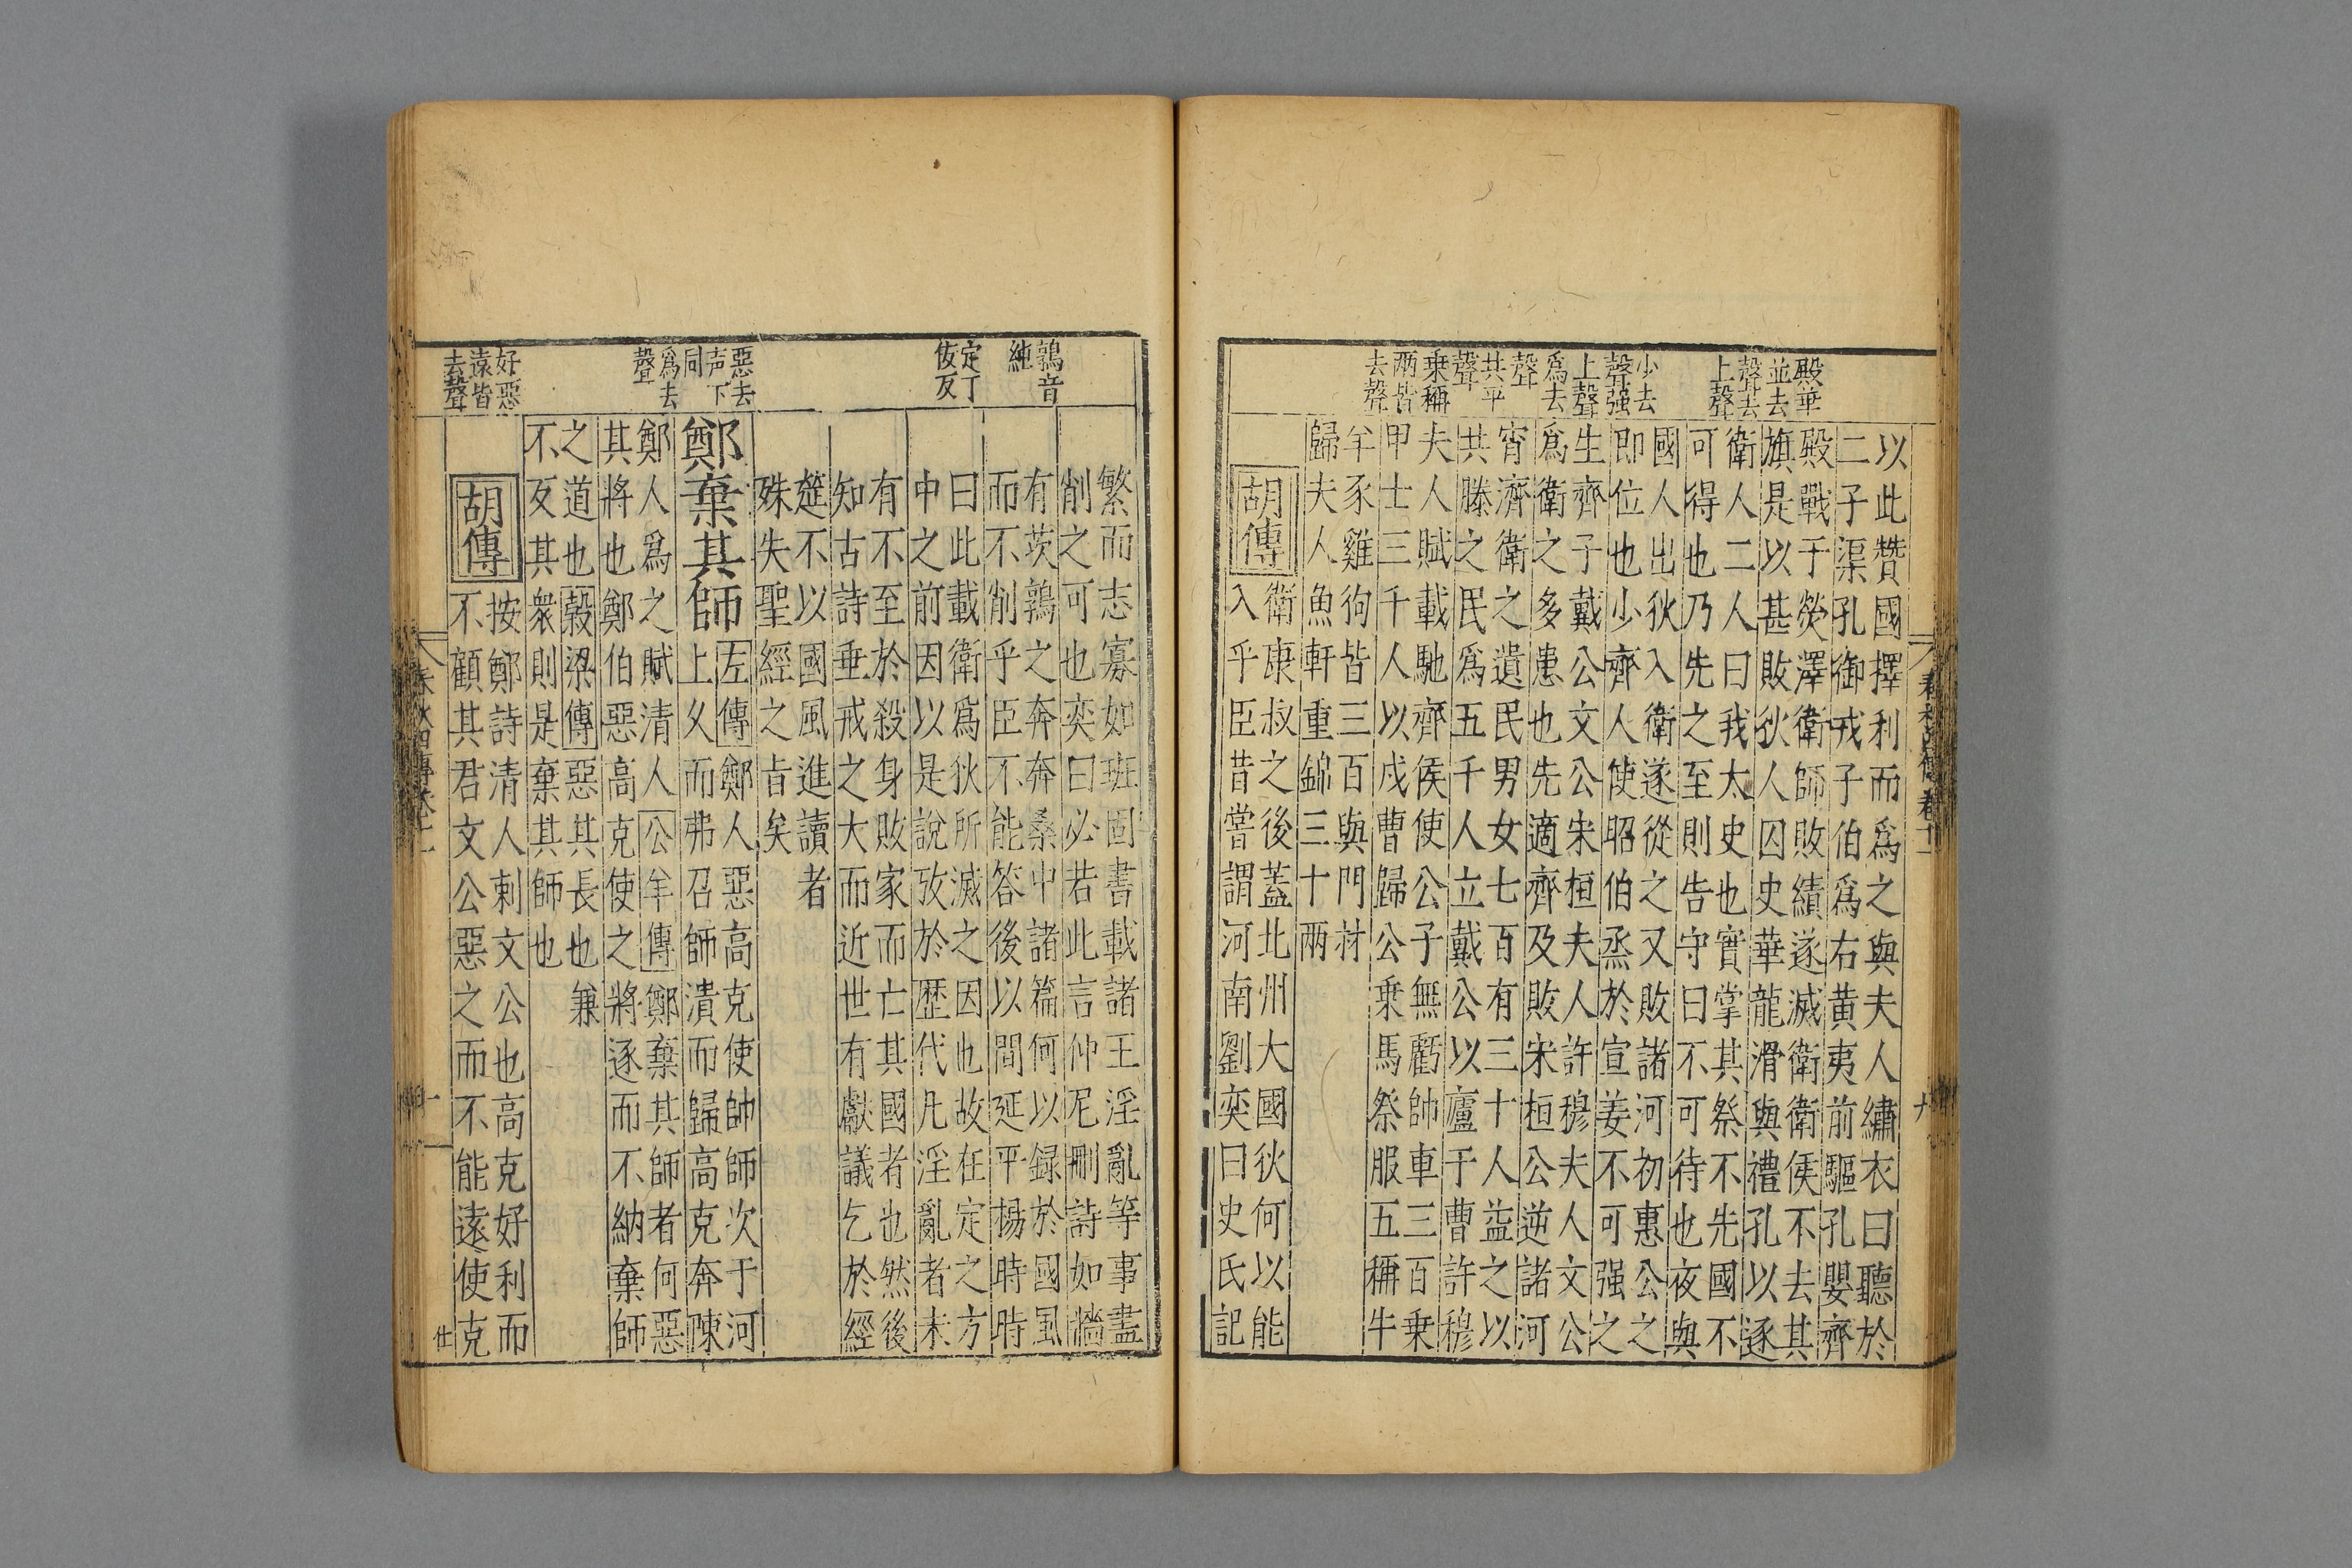 殿華
並去
聲去
上聲
少去
聲强
上聲
爲去
聲
共平
聲
乗稱
兩皆
去聲
以此贊國擇利而爲之與夫人繡衣曰聽於
二子渠孔御戎子伯爲右黄夷前驅孔嬰齊
殿戰于熒澤衛師敗績遂滅衛衛侯不去其
旗是以甚敗狄人囚史華龍滑與禮孔以逐
衛人二人曰我太史也實掌其祭不先國不
可得也乃先之至則告守曰不可待也夜與
國人出狄入衛遂從之又敗諸河初惠公之
即位也少齊人使昭伯烝於宣姜不可强之
生齊子戴公文公宋桓夫人許穆夫人文公
爲衛之多患也先適齊及敗宋桓公逆諸河
宵濟衛之遺民男女七百有三十人益之以
共滕之民爲五千人立戴公以廬于曹許穆
夫人賦載馳齊侯使公子無虧帥車三百乗
甲士三千人以戍曹歸公乗馬祭服五稱牛
羊豕雞狗皆三百與門材
歸夫人魚軒重錦三十兩
胡傳
衛康叔之後蓋北州大國狄何以能
入乎臣昔嘗謂河南劉奕曰史氏記
鶉音
純
定丁
佞反
惡去
声下
同
爲去
聲
好惡
遠皆
去聲
繁而志寡如班固書載諸王淫亂等事盡
削之可也奕曰必若此言仲尼刪詩如牆
有茨鶉之奔奔桑中諸篇何以録於國風
而不削乎臣不能答後以間延平楊時時
曰此載衛爲狄所滅之因也故在定之方
中之前因以是說攷於歷代凡淫亂者未
有不至於殺身敗家而亡其國者也然後
知古詩垂戒之大而近世有獻議乞於經
筵不以國風進讀者
殊失聖經之旨矣
鄭棄其師
左傳鄭人惡高克使帥師次于河
上乆而弗召師潰而歸高克奔陳
鄭人爲之賦清人公羊傳鄭棄其師者何惡
其將也鄭伯惡高克使之將逐而不納棄師
之道也榖梁傳惡其長也兼
不反其衆則是棄其師也
胡傳
按鄭詩清人刺文公也高克好利而
不顧其君文公惡之而不能遠使克